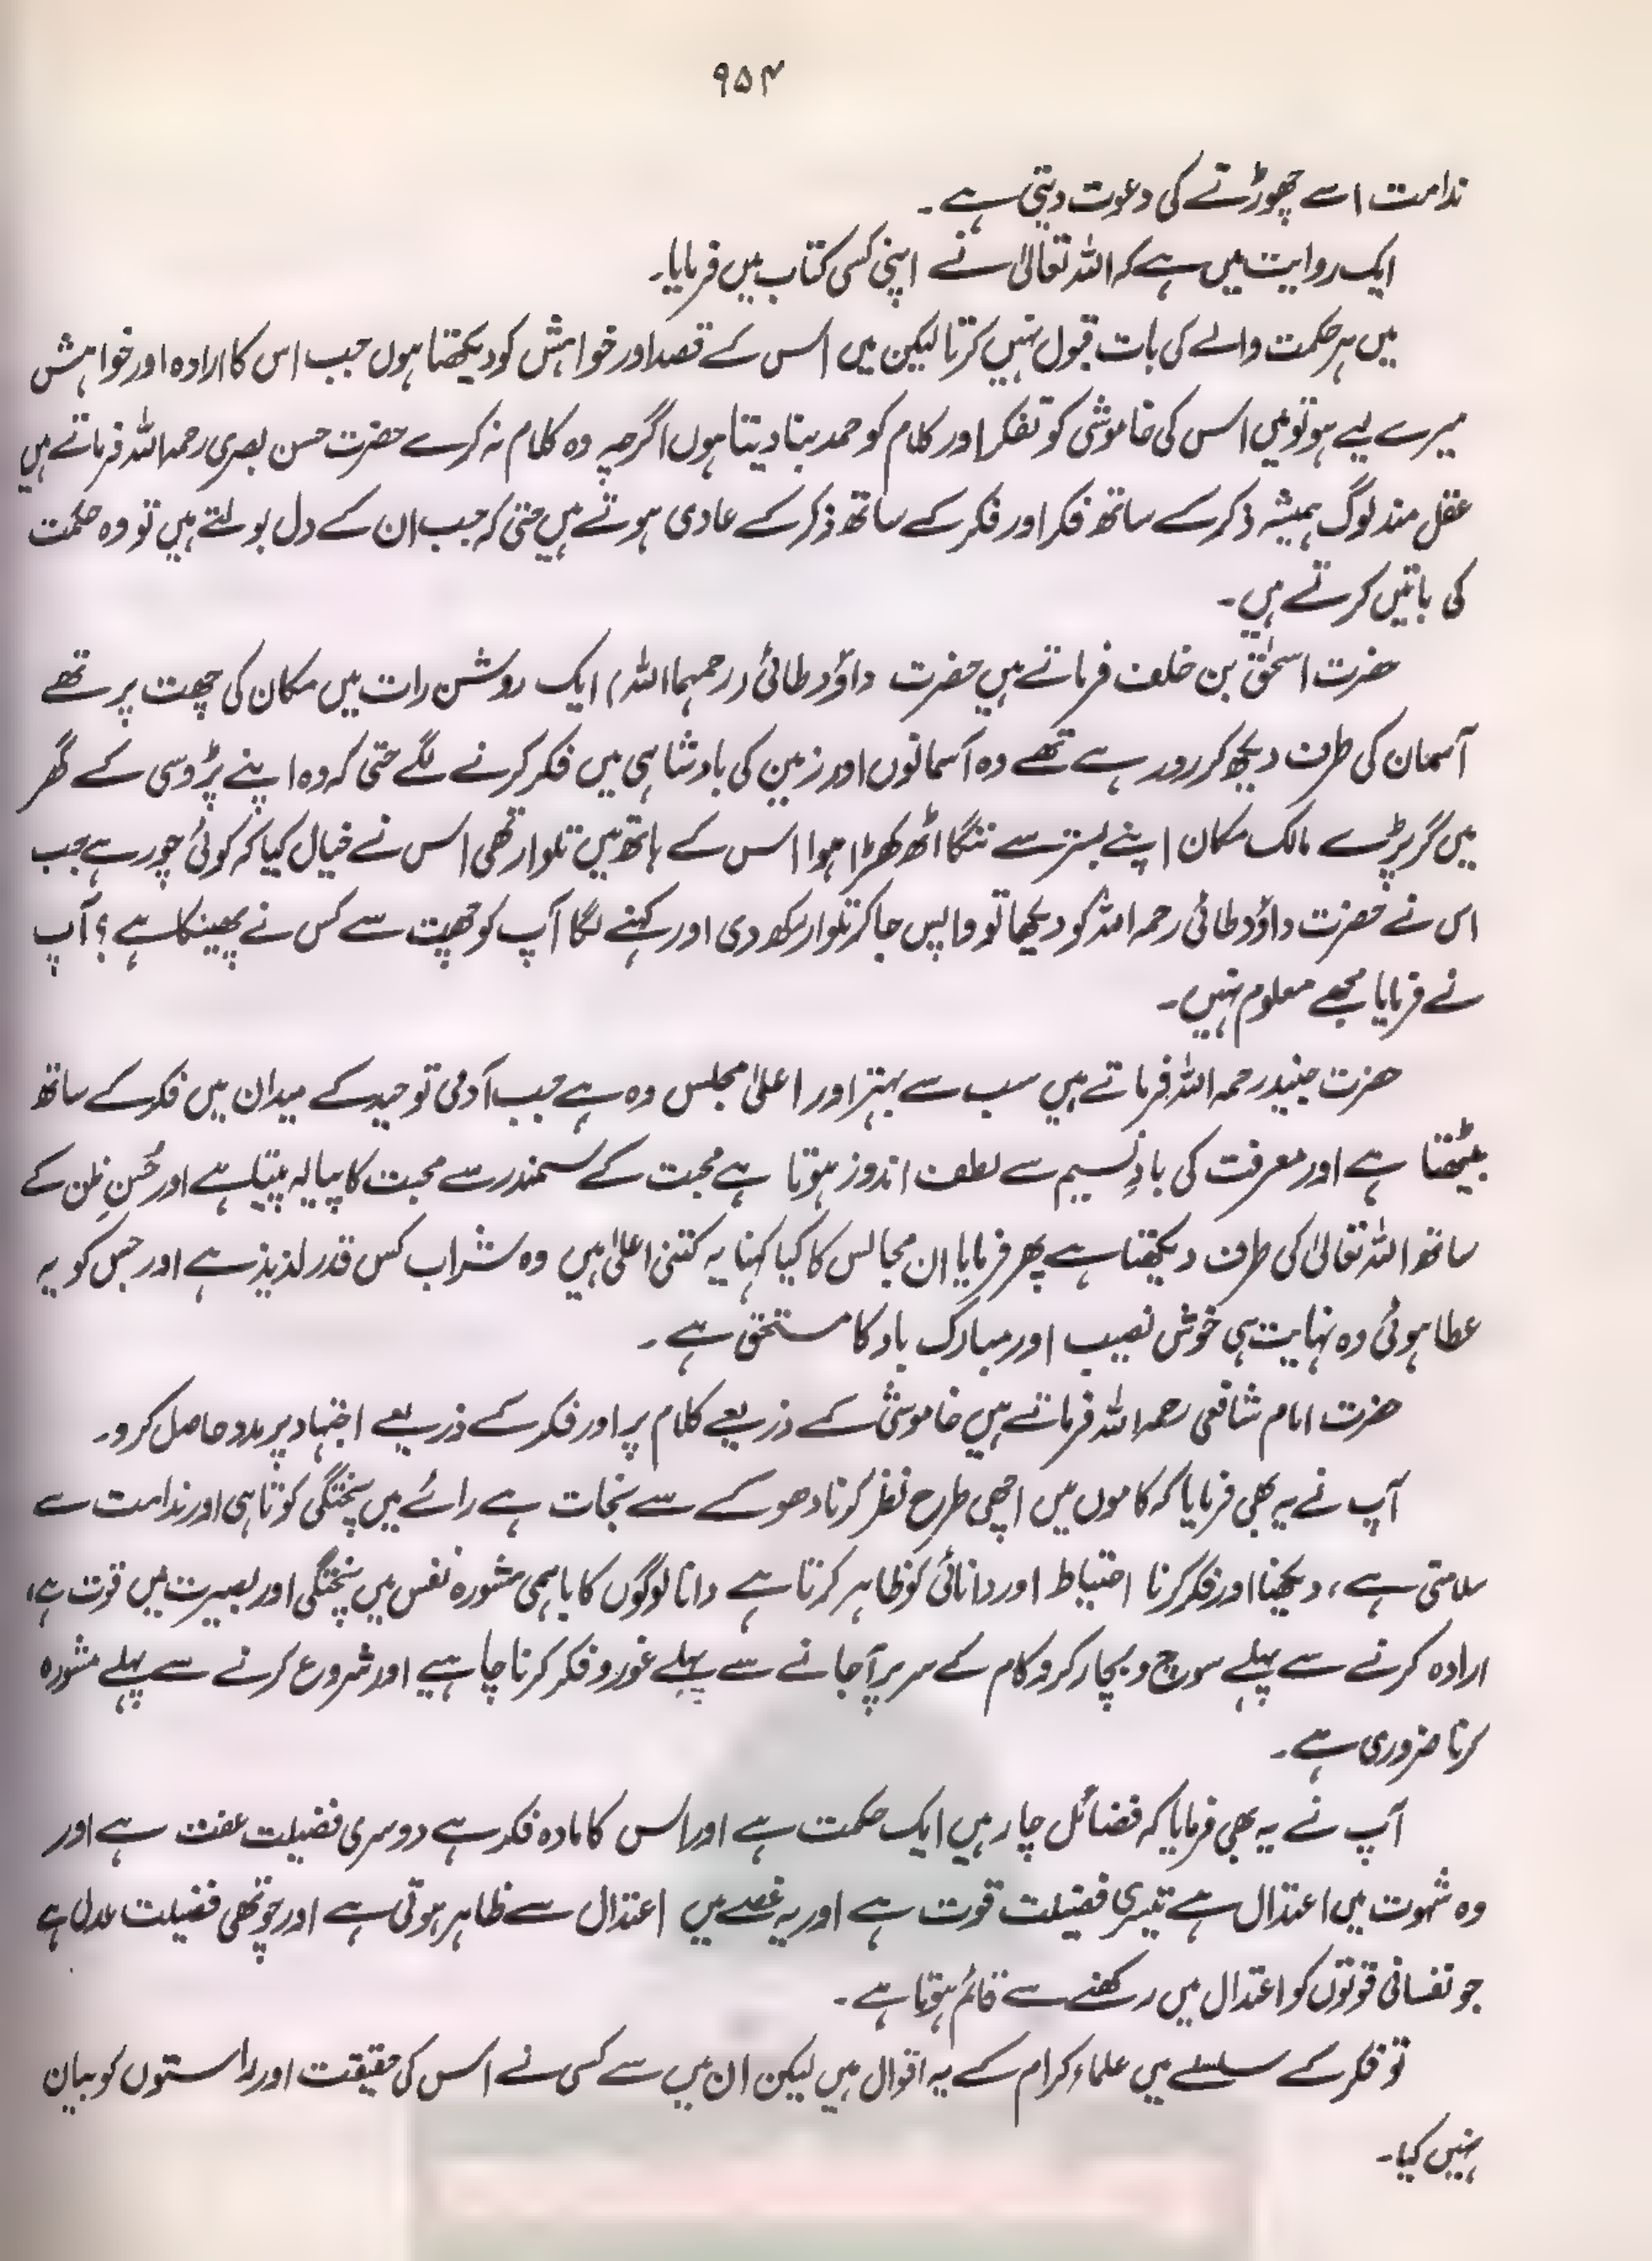 ۹۵۴
ندامت اسے چھوڑنے کی دعوت دیتی ہے۔
ایک روایت میں ہے کہ اللہ تعالیٰ نے اپنی کسی کتاب میں فرمایا۔
میں ہر حکمت والے کی بات قبول نہیں کرتا لیکن میں اس کے قصد اور خواہش کو دیکھتا ہوں جب اس کا ارادہ اور خواہش
میرے لیے ہو تو میں اس کی خاموشی کو تفکر اور کلام کو حمد بنا دیتا ہوں اگرچہ وہ کلام نہ کرے حضرت حسن بصری رحمہ اللہ فرماتے ہیں
عقل مند لوگ ہمیشہ ذکر کے ساتھ فکر اور فکر کے ساتھ ذکر کے عادی ہوتے ہیں حتیٰ کہ جب ان کے دل بولتے ہیں تو وہ حکمت
کی باتیں کرتے ہیں۔
حضرت اسحٰق بن خلف فرماتے ہیں حضرت داؤد طائی (رحمہما اللہ) ایک روشن رات میں مکان کی چھت پر تھے
آسمان کی طرف دیکھ کر رو رہے تھے وہ آسمانوں اور زمین کی بادشاہی میں فکر کرنے لگے حتی کہ وہ اپنے پڑوسی کے گھر
میں گر پڑے مالک مکان اپنے بستر سے ننگا اٹھ کھڑا ہوا اس کے ہاتھ میں تلوار تھی اس نے خیال کیا کہ کوئی چور ہے جب
اس نے حضرت داؤد طائی رحمہ اللہ کو دیکھا تو واپس جا کر تلوار رکھ دی اور کہنے لگا آپ کو چھت سے کس نے پھینکا ہے؟ آپ
نے فرمایا مجھے معلوم نہیں۔
حضرت جنید رحمہ اللہ فرماتے ہیں سب سے بہتر اور اعلیٰ مجلس وہ ہے جب آدمی توحید کے میدان میں فکر کے ساتھ
بیٹھتا ہے اور معرفت کی بادِ نسیم سے لطف اندوز ہوتا ہے محبت کے سمندر سے محبت کا پیالہ پیتا ہے اور حُسنِ ظن کے
ساتھ اللہ تعالیٰ کی طرف دیکھتا ہے پھر فرمایا ان مجالس کا کیا کہنا یہ کتنی اعلیٰ ہیں وہ شراب کس قدر لذیذ ہے اور جس کو یہ
عطا ہوئی وہ نہایت ہی خوش نصیب اور مبارک باد کا مستحق ہے۔
حضرت امام شافعی رحمہ اللہ فرماتے ہیں خاموشی کے ذریعے کلام پر اور فکر کے ذریعے اجتہاد پر مدد حاصل کرو۔
آپ نے یہ بھی فرمایا کہ کاموں میں اچھی طرح نظر کرنا دھوکے سے نجات ہے رائے میں پختگی کوتاہی اور ندامت سے
سلامتی ہے، دیکھنا اور فکر کرنا احتیاط اور دانائی کو ظاہر کرتا ہے دانا لوگوں کا باہمی مشورہ نفس میں پختگی اور بصیرت میں قوت ہے،
ارادہ کرنے سے پہلے سوچ و بچار کرو کام کے سر پر آ جانے سے پہلے غور و فکر کرنا چاہیے اور شروع کرنے سے پہلے مشورہ
کرنا ضروری ہے۔
آپ نے یہ بھی فرمایا کہ فضائل چار ہیں ایک حکمت ہے اور اس کا مادہ فکر ہے دوسری فضیلت عفت ہے اور
وہ شہوت میں اعتدال ہے تیسری فضیلت قوت ہے اور یہ غصے میں اعتدال سے ظاہر ہوتی ہے اور چوتھی فضیلت عدل ہے
جو نفسانی قوتوں کو اعتدال میں رکھنے سے قائم ہوتا ہے۔
تو فکر کے سلسلے میں علماء کرام کے یہ اقوال ہیں لیکن ان میں سے کسی نے اس کی حقیقت اور راستوں کو بیان
نہیں کیا۔